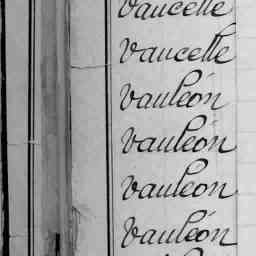 Vaucelle
Vaucelle
Vauléon
Vauléon
Vauléon
Vauléon